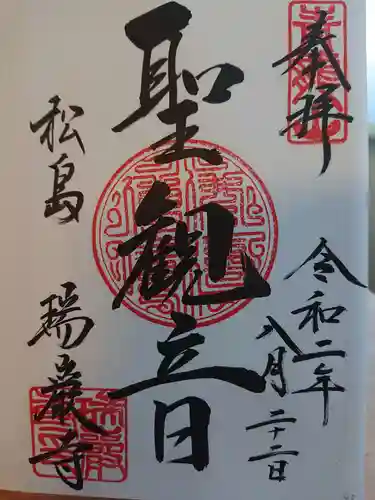 奉拝
令和二年
八月二十二日
聖観立日
松島 瑞巌寺